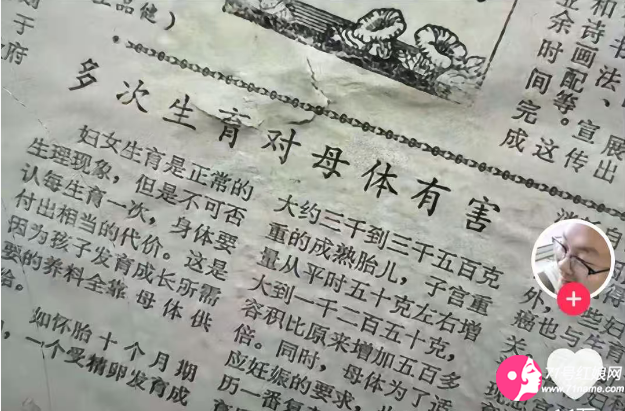 多次生育对母体有害
妇女生育是正常的
生理现象，但是不可否
认每生育一次，身体要
付出相当的代价。这是
因为孩子发育成长所需
要的养料全靠母体供
给。
如怀胎十个月期
，一个受精卵发育成
大约三千到三千五百克
重的成熟胎儿，子宫重
量从平时五十克左右增
大到一千二百五十克，
容积比原来增加五百多
倍。同时，母体为了适
应妊娠的要求，
历一番复
展出
书法、宣传
和诗画配等。这
业余时间完成
于
府
外，些妇
癌也与生
关
71号红娘网
www.71hname.com